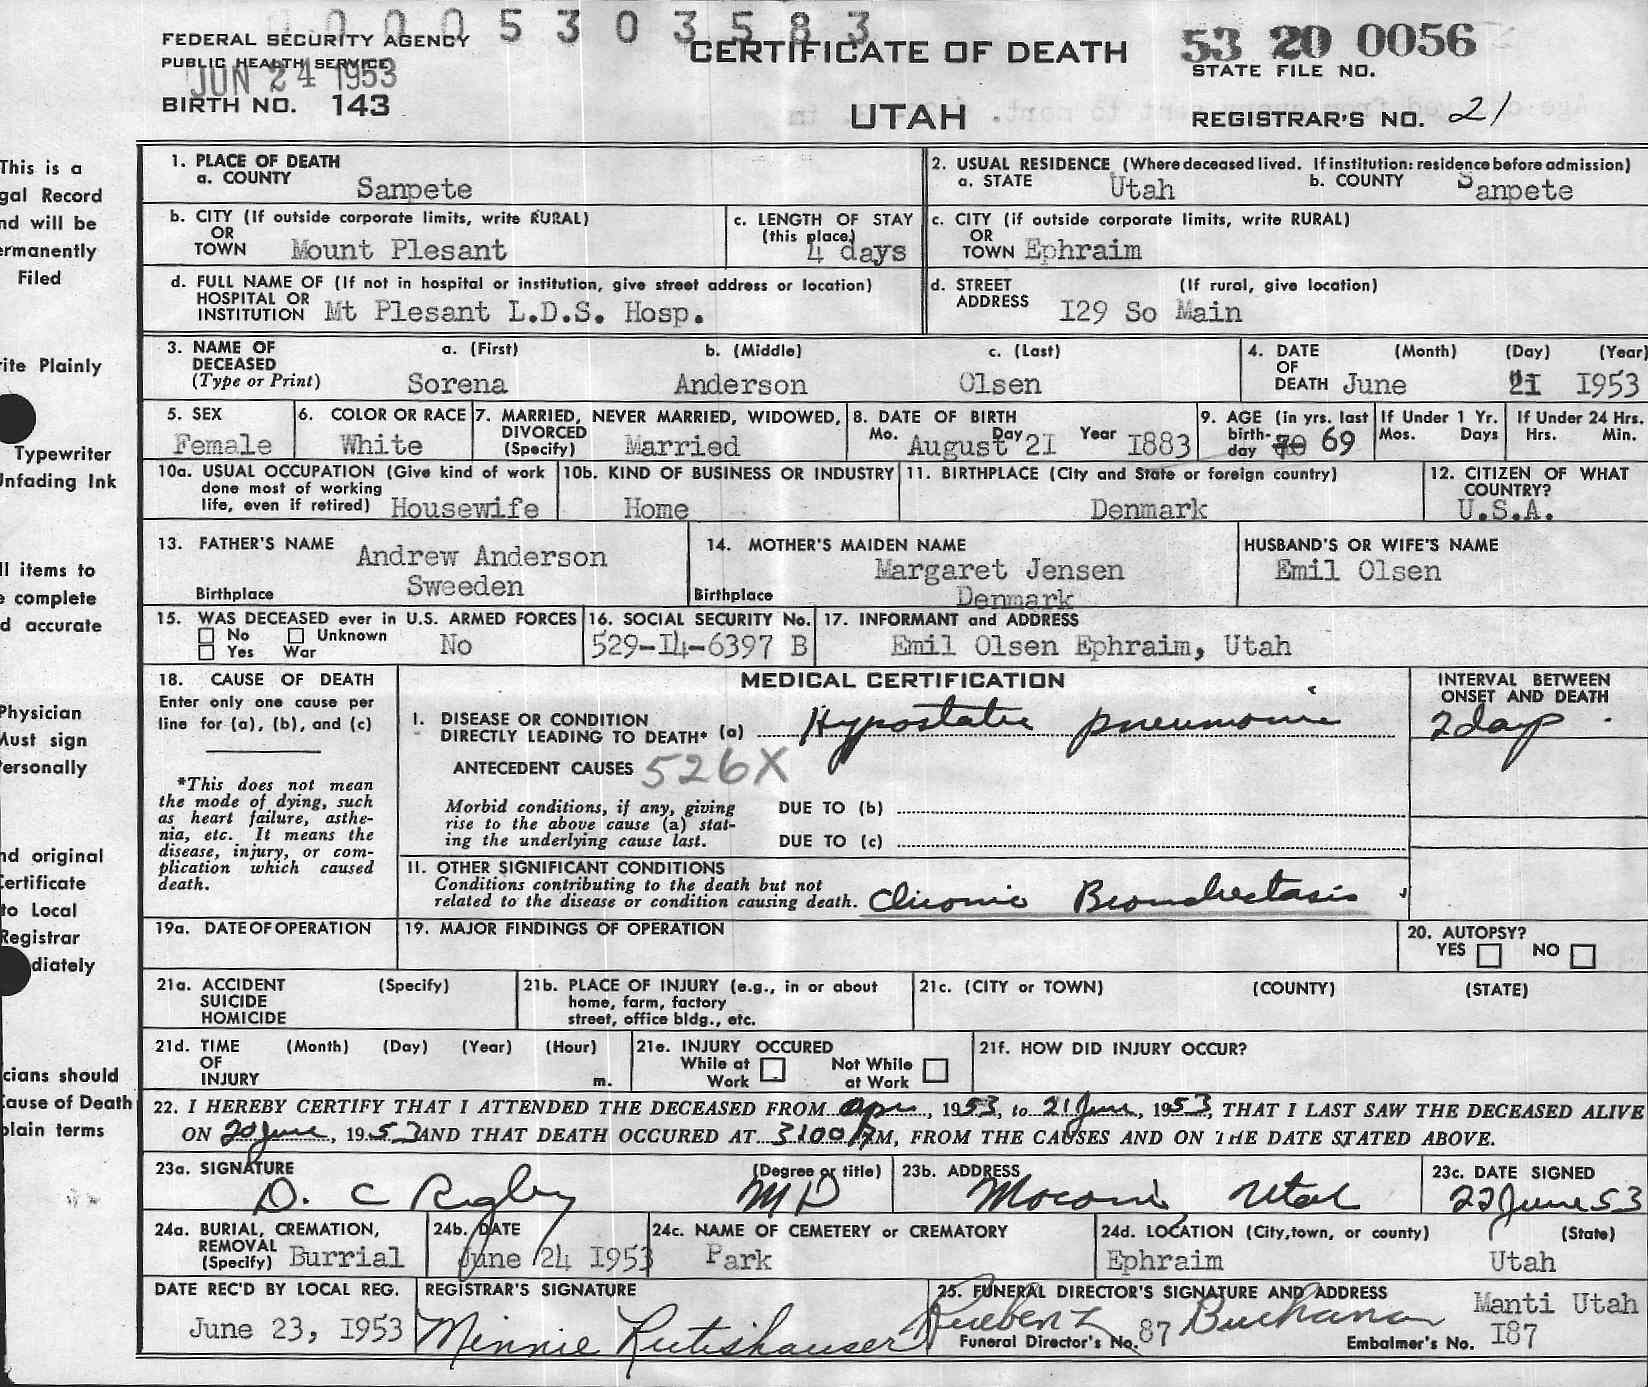 0005303583
FEDERAL SECURITY AGENCY
PUBLIC HEALTH SERVICE
JUN 24 1953
BIRTH NO. 143
CERTIFICATE OF DEATH
UTAH
53 20 0056
STATE FILE NO.
REGISTRAR'S NO. 21
This is a
gal Record
nd will be
ermanently
Filed
rite Plainly
Typewriter
Unfading Ink
ll items to
e complete
d accurate
Physician
Must sign
ersonally
nd original
Certificate
to Local
Registrar
diately
cians should
Cause of Death
plain terms
1. PLACE OF DEATH
a. COUNTY Sanpete
2. USUAL RESIDENCE (Where deceased lived. If institution: residence before admission)
a. STATE Utah b. COUNTY Sanpete
b. CITY (If outside corporate limits, write RURAL)
OR
TOWN Mount Plesant
c. LENGTH OF STAY
(this place)
4 days
c. CITY (if outside corporate limits, write RURAL)
OR
TOWN Ephraim
d. FULL NAME OF (If not in hospital or institution, give street address or location)
HOSPITAL OR
INSTITUTION Mt Plesant L.D.S. Hosp.
d. STREET (If rural, give location)
ADDRESS I29 So Main
3. NAME OF a. (First) b. (Middle) c. (Last)
DECEASED
(Type or Print) Sorena Anderson Olsen
4. DATE (Month) (Day) (Year)
OF
DEATH June 21 I953
5. SEX
Female
6. COLOR OR RACE
White
7. MARRIED, NEVER MARRIED, WIDOWED,
DIVORCED
(Specify) Married
8. DATE OF BIRTH
Mo. August Day 21 Year I883
9. AGE (in yrs. last
birth-
day 70 69
If Under 1 Yr.
Mos. Days
If Under 24 Hrs.
Hrs. Min.
10a. USUAL OCCUPATION (Give kind of work
done most of working
life, even if retired) Housewife
10b. KIND OF BUSINESS OR INDUSTRY
Home
11. BIRTHPLACE (City and State or foreign country)
Denmark
12. CITIZEN OF WHAT
COUNTRY?
U.S.A.
13. FATHER'S NAME Andrew Anderson
Birthplace Sweeden
14. MOTHER'S MAIDEN NAME
Margaret Jensen
Birthplace Denmark
HUSBAND'S OR WIFE'S NAME
Emil Olsen
15. WAS DECEASED ever in U.S. ARMED FORCES
No Unknown
Yes War
No
16. SOCIAL SECURITY No.
529-I4-6397 B
17. INFORMANT and ADDRESS
Emil Olsen Ephraim, Utah
18. CAUSE OF DEATH
Enter only one cause per
line for (a), (b), and (c)
*This does not mean
the mode of dying, such
as heart failure, asthe-
nia, etc. It means the
disease, injury, or com-
plication which caused
death.
MEDICAL CERTIFICATION
INTERVAL BETWEEN
ONSET AND DEATH
I. DISEASE OR CONDITION
DIRECTLY LEADING TO DEATH* (a) Hypostatic pneumonia 2 days
ANTECEDENT CAUSES 526X
Morbid conditions, if any, giving
rise to the above cause (a) stat-
ing the underlying cause last.
DUE TO (b)
DUE TO (c)
II. OTHER SIGNIFICANT CONDITIONS
Conditions contributing to the death but not
related to the disease or condition causing death. Chronic Bronchectasis
19a. DATE OF OPERATION
19. MAJOR FINDINGS OF OPERATION
20. AUTOPSY?
YES NO
21a. ACCIDENT (Specify)
SUICIDE
HOMICIDE
21b. PLACE OF INJURY (e.g., in or about
home, farm, factory
street, office bldg., etc.
21c. (CITY or TOWN) (COUNTY) (STATE)
21d. TIME (Month) (Day) (Year) (Hour)
OF
INJURY m.
21e. INJURY OCCURED
While at Work
Not While at Work
21f. HOW DID INJURY OCCUR?
22. I HEREBY CERTIFY THAT I ATTENDED THE DECEASED FROM Apr, 1953, to 21 June, 1953, THAT I LAST SAW THE DECEASED ALIVE
ON 20 June, 1953 AND THAT DEATH OCCURED AT 3:00 PM, FROM THE CAUSES AND ON THE DATE STATED ABOVE.
23a. SIGNATURE (Degree or title)
D. C Rigby MD
23b. ADDRESS
Moroni Utah
23c. DATE SIGNED
22 June 53
24a. BURIAL, CREMATION,
REMOVAL
(Specify) Burrial
24b. DATE
June 24 I953
24c. NAME OF CEMETERY or CREMATORY
Park
24d. LOCATION (City, town, or county) (State)
Ephraim Utah
DATE REC'D BY LOCAL REG.
June 23, I953
REGISTRAR'S SIGNATURE
Minnie Rutishauser
25. FUNERAL DIRECTOR'S SIGNATURE AND ADDRESS
Rueben L Buchanan Manti Utah
Funeral Director's No. 87 Embalmer's No. I87